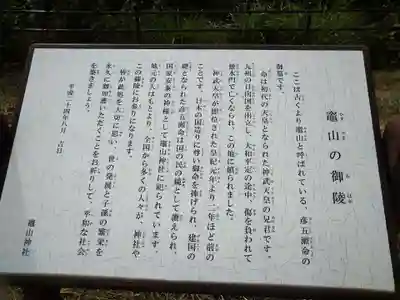 竈山の御陵
ここは古くより竈山と呼ばれている、彦五瀬命の
御墓です。
命は初代の天皇となられた神武天皇の兄君です。
九州の日向国を出立し、大和平定の途中、傷を負われて
雄水門で亡くなられ、この地に鎮られました。
神武天皇が即位された皇紀元年より二年ほど前の
ことです。日本の国造りに尊い御命を捧げられ、建国の
礎となられた彦五瀬命は国の民の鑑として讃えられ、
国家安泰の神様として竈山神社に祀られています。
地元の人はもとより、全国から多くの人々が、神社や
この御陵にお参りになります。
皆が此処を大切に思い、世の発展と子孫の繁栄を
永久に御加護いただくことをお祈りして、平和な社会
を築きましょう。
平成二十四年八月 吉日
竈山神社